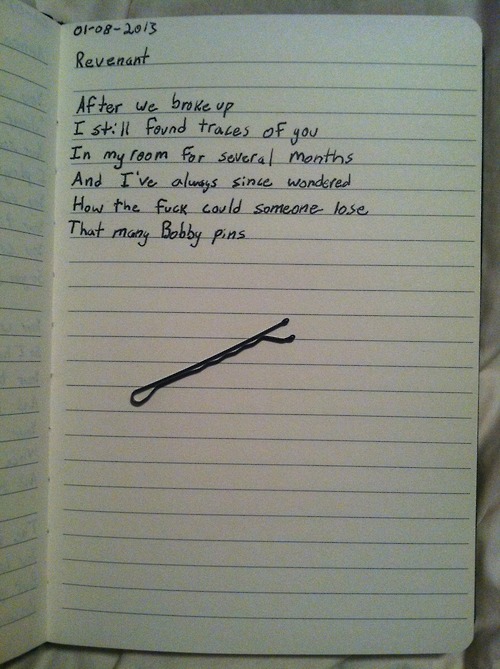 01-08-2013
Revenant
After we broke up
I still found traces of you
In my room for several months
And I've always since wondered
How the fuck could someone lose
That many Bobby pins